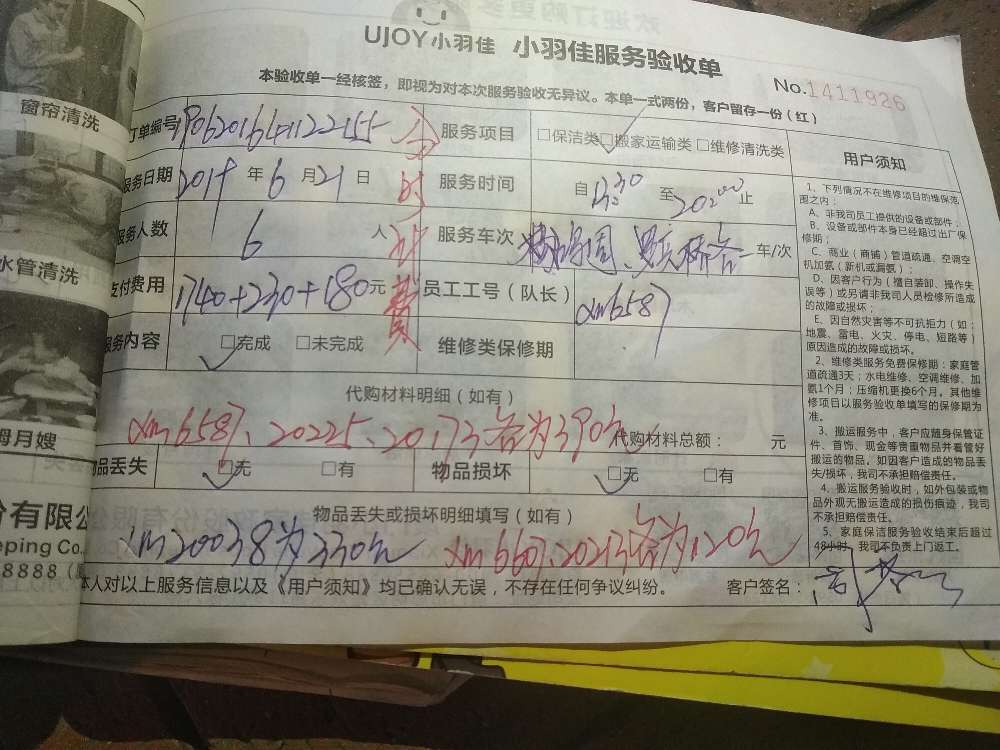 欢迎订购更多
UJOY小羽佳 小羽佳服务验收单
No.1411926
本验收单一经核签，即视为对本次服务验收无异议。本单一式两份，客户留存一份（红）
窗帘清洗
水管清洗
母月嫂
份有限公
eping Co.,
8888（
订单编号
服务项目 □保洁类 □搬家运输类 □维修清洗类
服务日期 2019 年 6 月 21 日
服务时间 自 13:30 至 20:00 止
服务人数 6 人
服务车次 车/次
支付费用 1740+230+180 元
员工工号（队长） xm6587
服务内容 □完成 □未完成
维修类保修期
计
费
代购材料明细（如有）
xm6587、20225、20173各为390元
代购材料总额： 元
物品丢失 □无 □有
物品损坏 □无 □有
物品丢失或损坏明细填写（如有）
xm20038为330元 xm6607、20213各为120元
本人对以上服务信息以及《用户须知》均已确认无误，不存在任何争议纠纷。
客户签名：
用户须知
1、下列情况不在维修项目的维保范
围之内：
A、非我司员工提供的设备或部件；
B、设备或部件本身已经超过出厂保
修期；
C、商业（商铺）管道疏通、空调空
机加氨（新机或漏氨）；
D、因客户行为（擅自装卸、操作失
误等）或另请非我司人员检修所造成
的故障或损坏；
E、因自然灾害等不可抗拒力（如：
地震、雷电、火灾、停电、短路等）
原因造成的故障或损坏。
2、维修类服务免费保修期：家庭管
道疏通3天；水电维修、空调维修、加
氨1个月；压缩机更换6个月。其他维
修项目以服务验收单填写的保修期为
准。
3、搬运服务中，客户应随身保管证
件、首饰、现金等贵重物品并看管好
搬运的物品。如因客户造成的物品丢
失/损坏，我司不承担赔偿责任。
4、搬运服务验收时，如外包装或物
品外观无搬运造成的损伤痕迹，我司
不承担赔偿责任。
5、家庭保洁服务验收结束后超过
48小时，我司不负责上门返工。